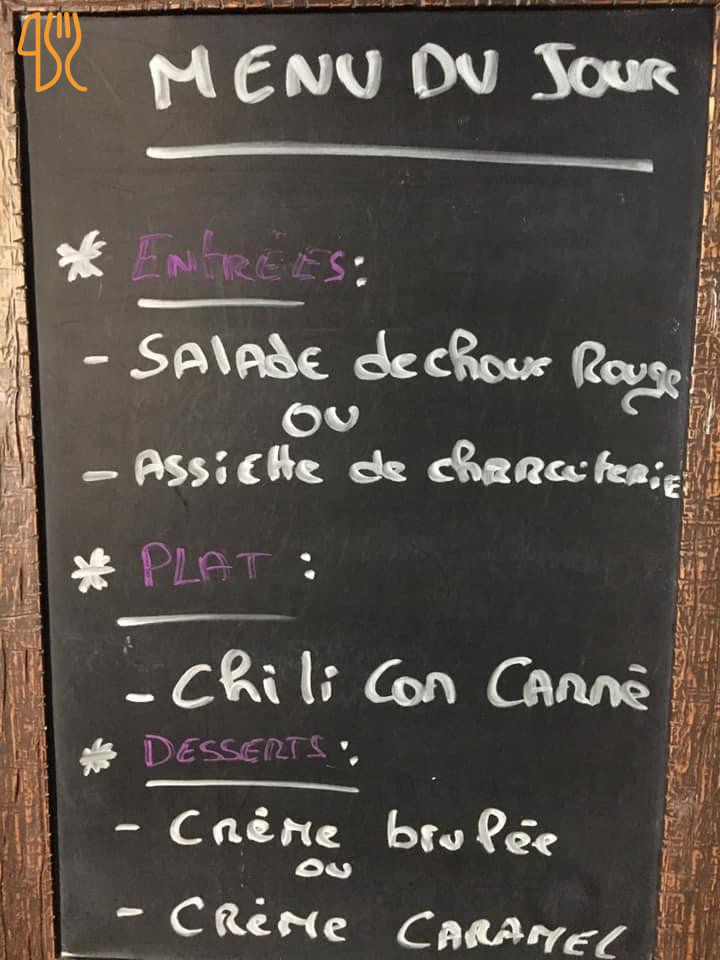 MENU DU JOUR
* ENTRÉES:
- SALADE de choux Rouge
OU
- ASSIETTE de charcuterie
* PLAT :
- Chili Con CARNÉ
* DESSERTS :
- CRÈME brulée
ou
- CRÈME CARAMEL